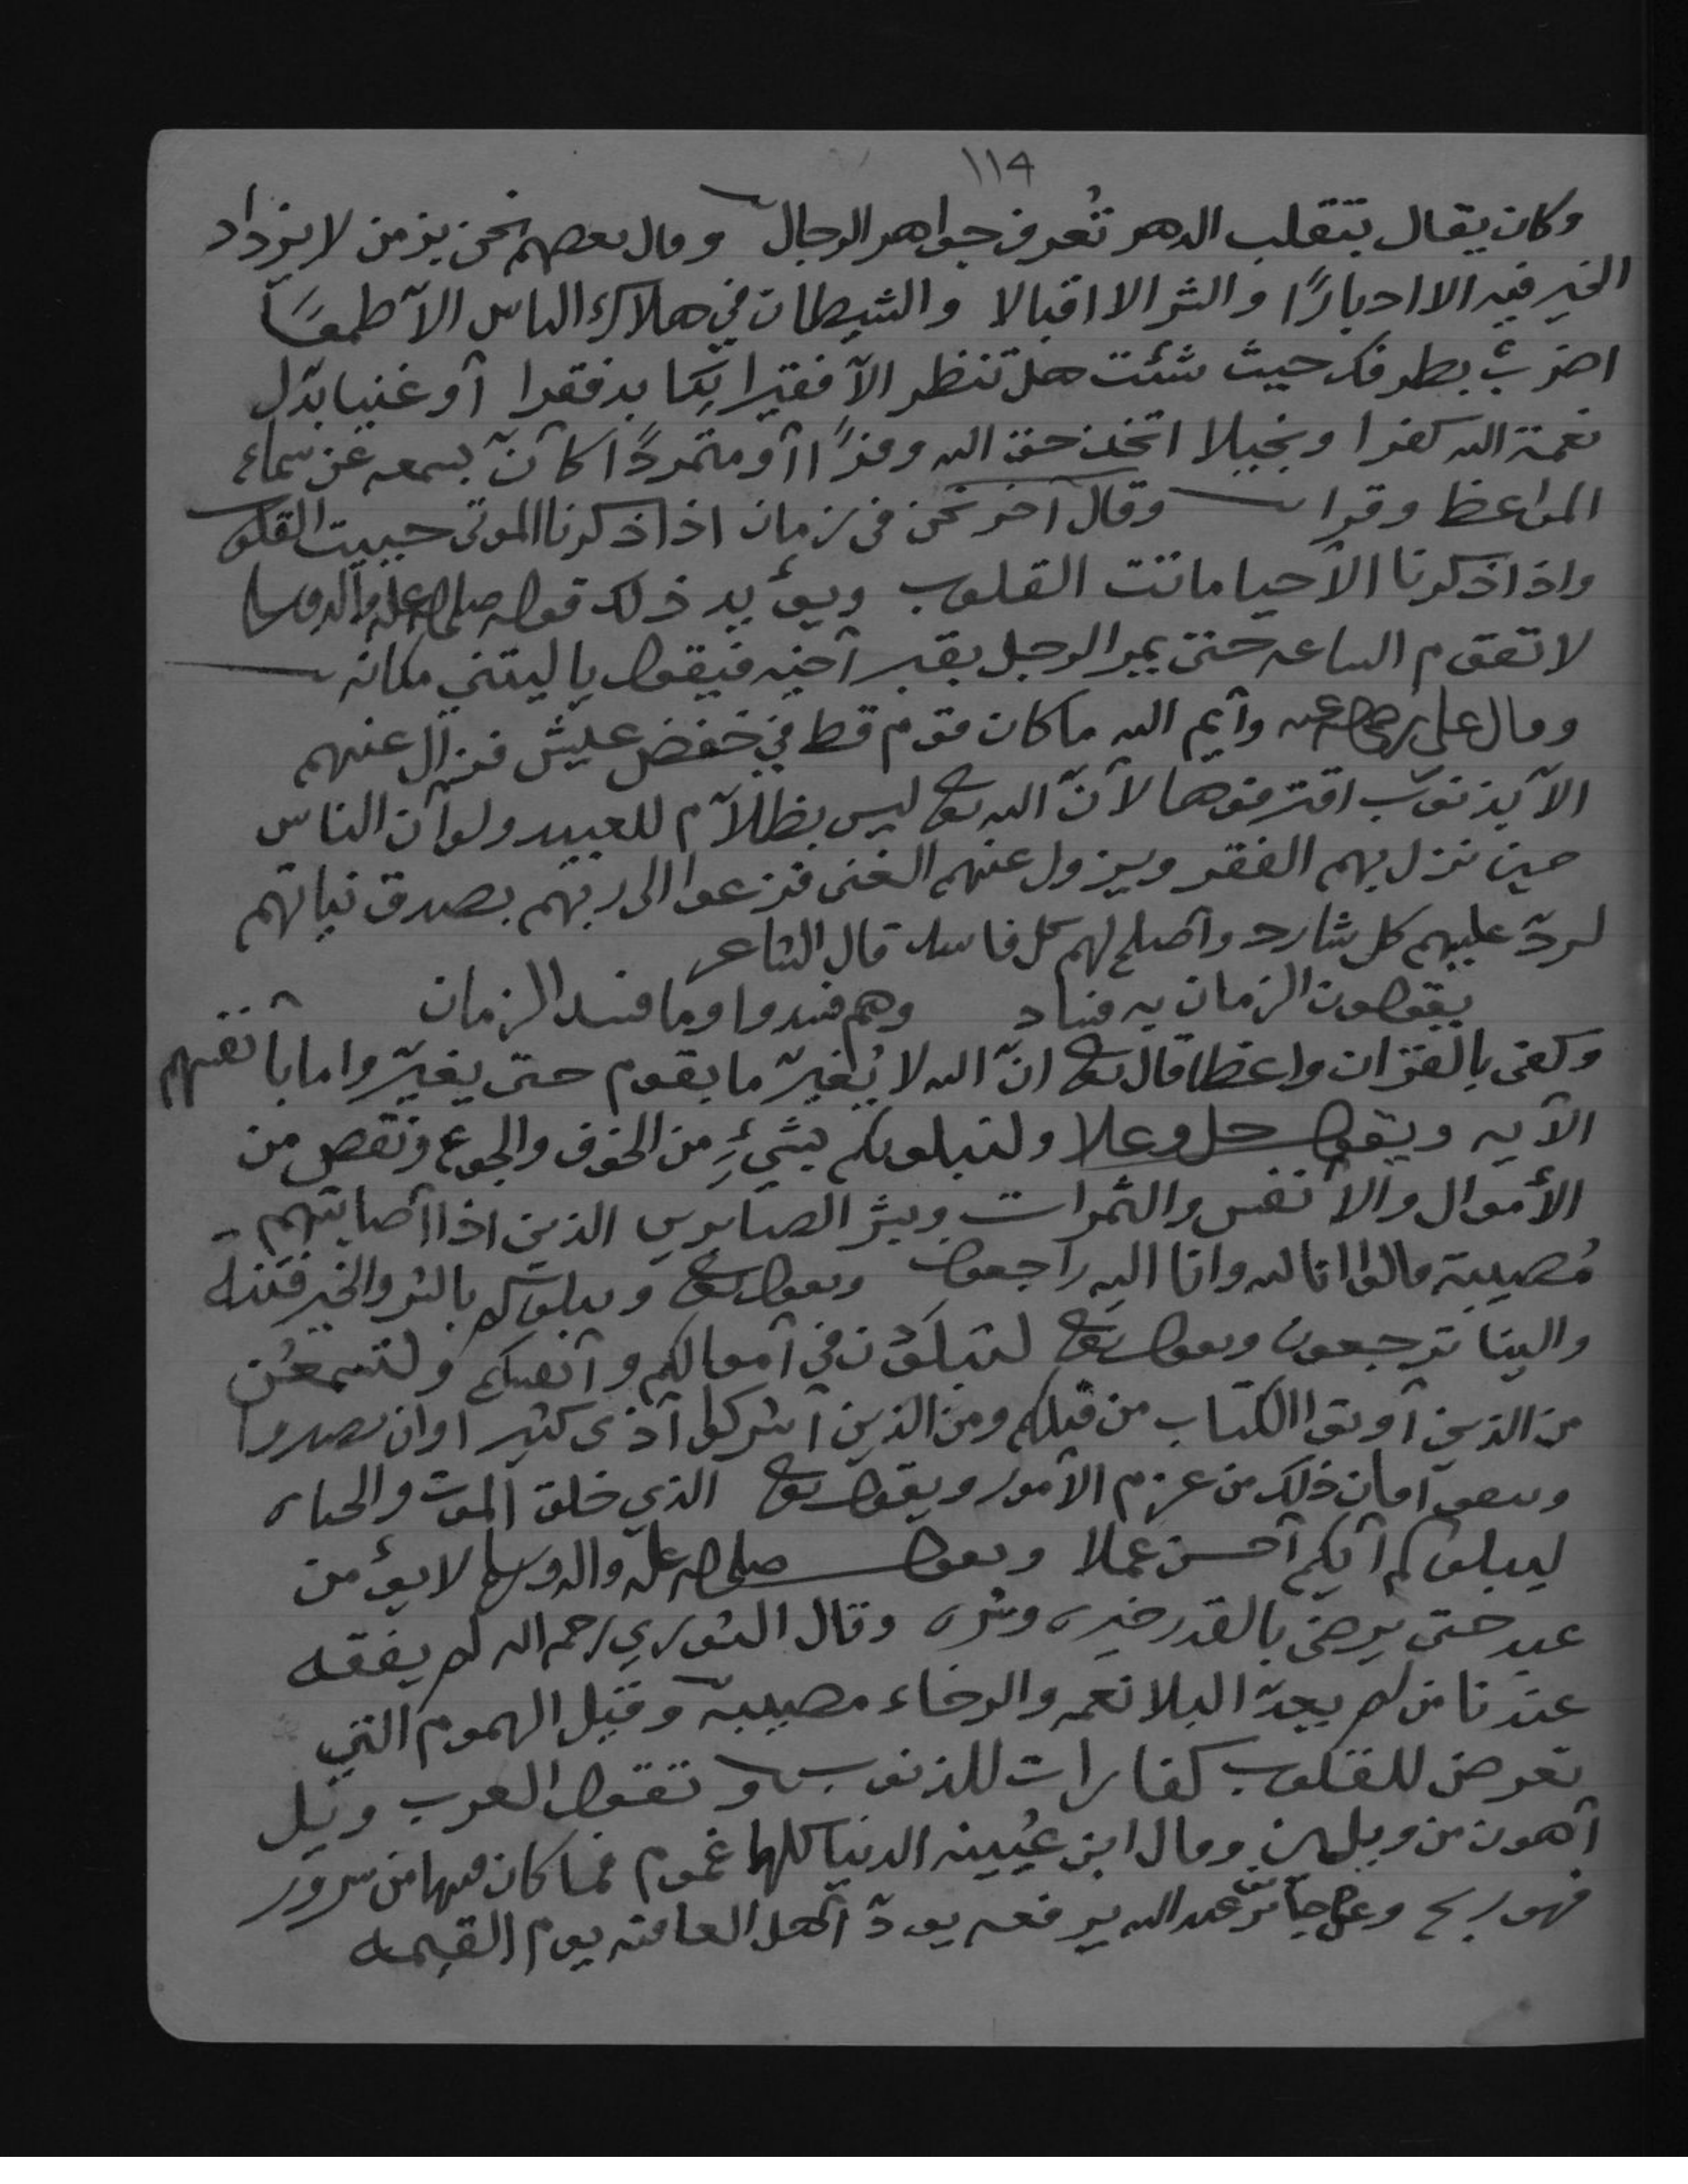 ١١٤
وكان يقال بتقلب الدهر تُعرف جواهر الرجال وقال بعضهم نحن بزمن لا يزداد
الخير فيه الا ادبارًا والشر الا اقبالا والشيطان في هلاك الناس الآ طمعًا
اضرب بطرفك حيث شئت هل تنظر الآ فقيرا يكابد فقرا أو غنيا بدّل
نعمة الله كفرا وبخيلا اتخذ حق الله وفرًا أو متمردًا كأنّ بسمعه عن سماع
المواعظ وقرا وقال آخر نحن في زمان اذا ذكرنا الموتى حييت القلوب
واذا ذكرنا الأحيا ماتت القلوب ويؤيد ذلك قوله صلى الله عليه وآله وسلم
لا تقوم الساعه حتى يمر الرجل بقبر أخيه فيقول يا ليتني مكانه
وقال علي رضي الله عنه وأيم الله ما كان قوم قط في خفض عيش فزال عنهم
الآ بذنوب اقترفوها لأنّ الله تعالى ليس بظلآم للعبيد ولو أن الناس
حين نزل بهم الفقر ويزول عنهم الغنى فزعوا الى ربهم بصدق نياتهم
لردّ عليهم كل شارد وأصلح لهم كل فاسد قال الشاعر
يقولون الزمان به فساد وهم فسدوا وما فسد الزمان
وكفى بالقران واعظا قال تعالى انّ الله لا يُغيّر ما بقوم حتى يغيّروا ما بأنفسهم
الآيه ويقول جل وعلا ولنبلونكم بشيءٍ من الخوف والجوع ونقص من
الأموال والأنفس والثمرات وبشر الصابرين الذين اذا أصابتهم
مُصيبة قالوا انا لله وانا اليه راجعون ويقول تعالى ونبلوكم بالشر والخير فتنة
والينا ترجعون ويقول تعالى لتبلوُن في أموالكم وأنفسكم ولتسمعُن
من الذين أوتوا الكتاب من قبلكم ومن الذين أشركوا أذى كثيرا وان تصبروا
وتتقوا فان ذلك من عزم الأمور ويقول تعالى الذي خلق الموت والحياه
ليبلوكم أيكم أحسن عملا ويقول صلى الله عليه وآله وسلم لا يؤمن
عبد حتى يرضى بالقدر خيره وشره وقال الثوري رحمه الله لم يفقه
عندنا من لم يعدّ البلا نعمه والرخاء مصيبة وقيل الهموم التي
تعرض للقلوب كفارات للذنوب وتقول العرب ويل
أهون من ويلين وقال ابن عُيينه الدنيا كلها غموم فما كان فيها من سرور
فهو ربح وعن جابر بن عبد الله يرفعه يودّ أهل العافيه يوم القيمه